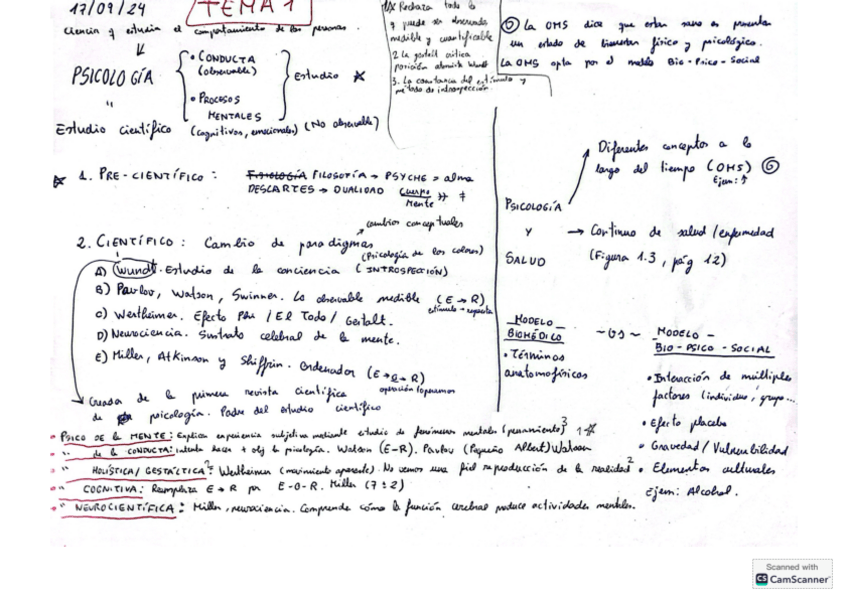 17/09/24
TEMA 1
Ciencia q estudia el comportamiento de las personas.
PSICOLOGÍA
"
Estudio científico
• CONDUCTA
(observable)
• PROCESOS
MENTALES
(cognitivos, emocionales) (No observable)
estudio
1. Rechaza todo lo
q puede ser observado
medible y cuantificable
2. La gestalt critica
posición Wundt
3. La del estímulo y
método de introspección.
La OMS dice que estar sano es presentar
un estado de bienestar físico y psicológico.
La OMS opta por el modelo Bio-Psico-Social
1. PRE-CIENTÍFICO: FISIOLOGÍA FILOSOFÍA → PSYCHE = alma
DESCARTES → DUALIDAD Cuerpo
Mente ≠
cambios conceptuales
2. CIENTÍFICO: Cambio de paradigmas
(Psicología de los colores)
A) Wundt. Estudio de la conciencia (INTROSPECCIÓN)
B) Pavlov, Watson, Swinner. Lo observable medible (E → R)
estímulo → respuesta
C) Wertheimer. Efecto Phi / El Todo / Gestalt.
D) Neurociencia. Sustrato celebral de la mente.
E) Miller, Atkinson y Shiffrin. Ordenador (E → O → R)
operación
Creador de la primera revista científica
de psicología. Padre del estudio científico
• PSICO DE LA MENTE: Explica experiencia subjetiva mediante estudio de fenómenos mentales (pensamiento)³
• " DE LA CONDUCTA: intenta hacer + obj la psicología. Watson (E-R). Pavlov (Pequeño Albert) Watson
• " HOLÍSTICA / GESTÁLTICA: Wertheimer (movimiento aparente). No vemos una fiel reproducción de la realidad²
• " COGNITIVA: Reemplaza E → R por E-O-R. Miller (7±2)
• " NEUROCIENTÍFICA: Miller, neurociencia. Comprende cómo la función cerebral produce actividades mentales.
PSICOLOGÍA
Y
SALUD
Diferentes conceptos a lo
largo del tiempo (OMS)
Ejem: ↑
→ Continuo de salud/enfermedad
(Figura 1.3, pág 12)
MODELO
BIOMÉDICO
• Términos
anatomofísicos
~ vs ~
MODELO
BIO-PSICO-SOCIAL
• Interacción de múltiples
factores (individuo, grupo...
• Efecto placebo
• Gravedad / Vulnerabilidad
• Elementos culturales
Ejem: Alcohol.
Scanned with
CS CamScanner